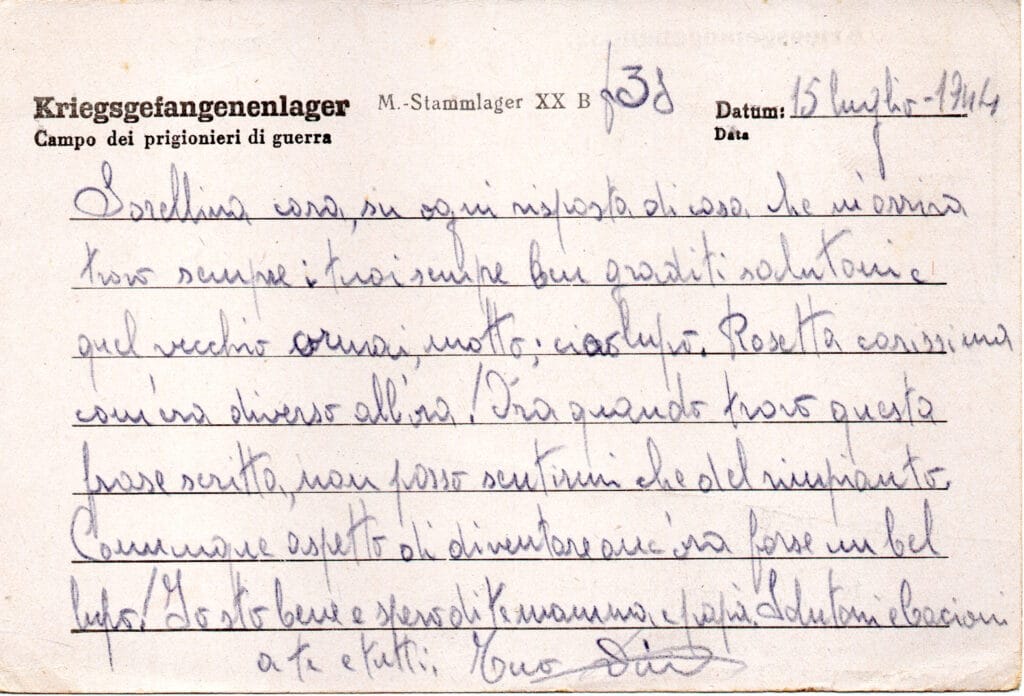 Kriegsgefangenenlager M.-Stammlager XX B Datum: 15 luglio-1944
Campo dei prigionieri di guerra Data
Sorellina cara, su ogni risposta di casa che m'arriva
trovo sempre i tuoi sempre ben graditi salutoni e
quel vecchio ormai, motto; ciao lupo. Rosetta carissima
com'era diverso all'ora! Ora quando trovo questa
frase scritta, non posso sentirmi che del rimpianto.
Comunque aspetto di diventare anc'ora forse un bel
lupo! Io sto bene e spero di te mamma e papà. Salutoni e bacioni
a te e tutti. Tuo